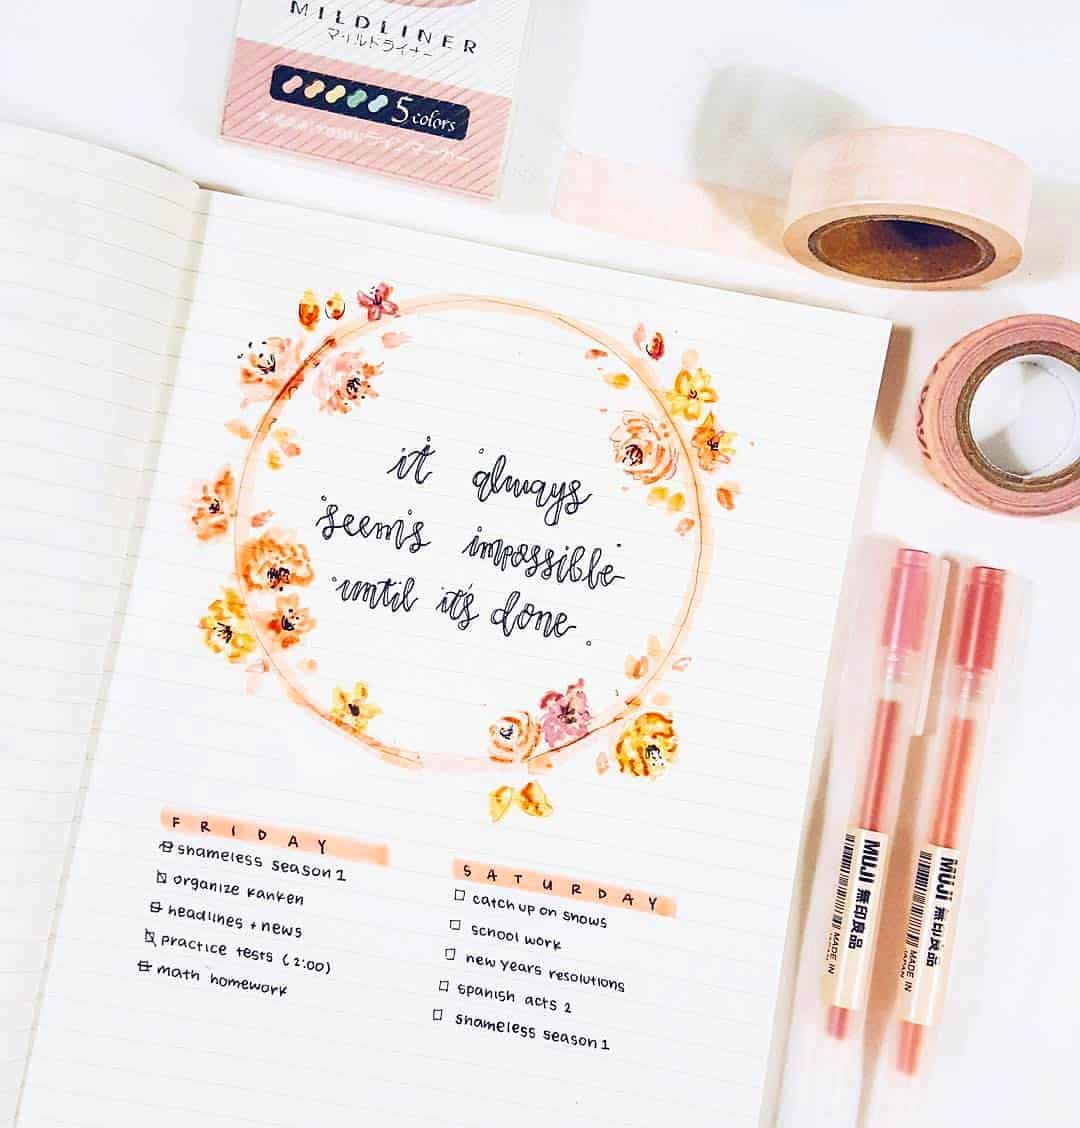 MILDLINER
マイルドライナー
5 colors
it always
seems impossible
until it's done.
FRIDAY
shameless season 1
organize kanken
headlines + news
practice tests (2:00)
math homework
SATURDAY
catch up on shows
school work
new years resolutions
spanish acts 2
shameless season 1
MUJI 無印良品
MADE IN
JAPAN
MUJI 無印良品
MADE IN
JAPAN